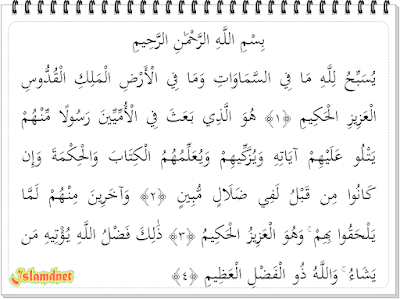 بِسْمِ اللَّهِ الرَّحْمَٰنِ الرَّحِيمِ
يُسَبِّحُ لِلَّهِ مَا فِي السَّمَاوَاتِ وَمَا فِي الْأَرْضِ الْمَلِكِ الْقُدُّوسِ
الْعَزِيزِ الْحَكِيمِ ﴿١﴾ هُوَ الَّذِي بَعَثَ فِي الْأُمِّيِّينَ رَسُولًا مِّنْهُمْ
يَتْلُو عَلَيْهِمْ آيَاتِهِ وَيُزَكِّيهِمْ وَيُعَلِّمُهُمُ الْكِتَابَ وَالْحِكْمَةَ وَإِن
كَانُوا مِن قَبْلُ لَفِي ضَلَالٍ مُّبِينٍ ﴿٢﴾ وَآخَرِينَ مِنْهُمْ لَمَّا
يَلْحَقُوا بِهِمْ ۚ وَهُوَ الْعَزِيزُ الْحَكِيمُ ﴿٣﴾ ذَٰلِكَ فَضْلُ اللَّهِ يُؤْتِيهِ مَن
يَشَاءُ ۚ وَاللَّهُ ذُو الْفَضْلِ الْعَظِيمِ ﴿٤﴾
islamdnet